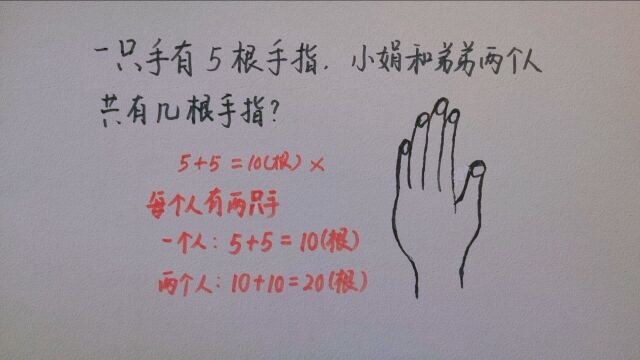 一只手有5根手指.小娟和弟弟两个人
共有几根手指?
5+5=10(根) ×
每个人有两只手
一个人:5+5=10(根)
两个人:10+10=20(根)